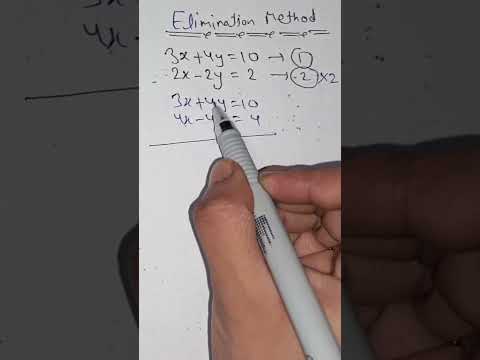 Elimination Method
3x+4y=10 → 1
2x-2y=2 → 2 ×2
3x+4y=10
4x-4 = 4